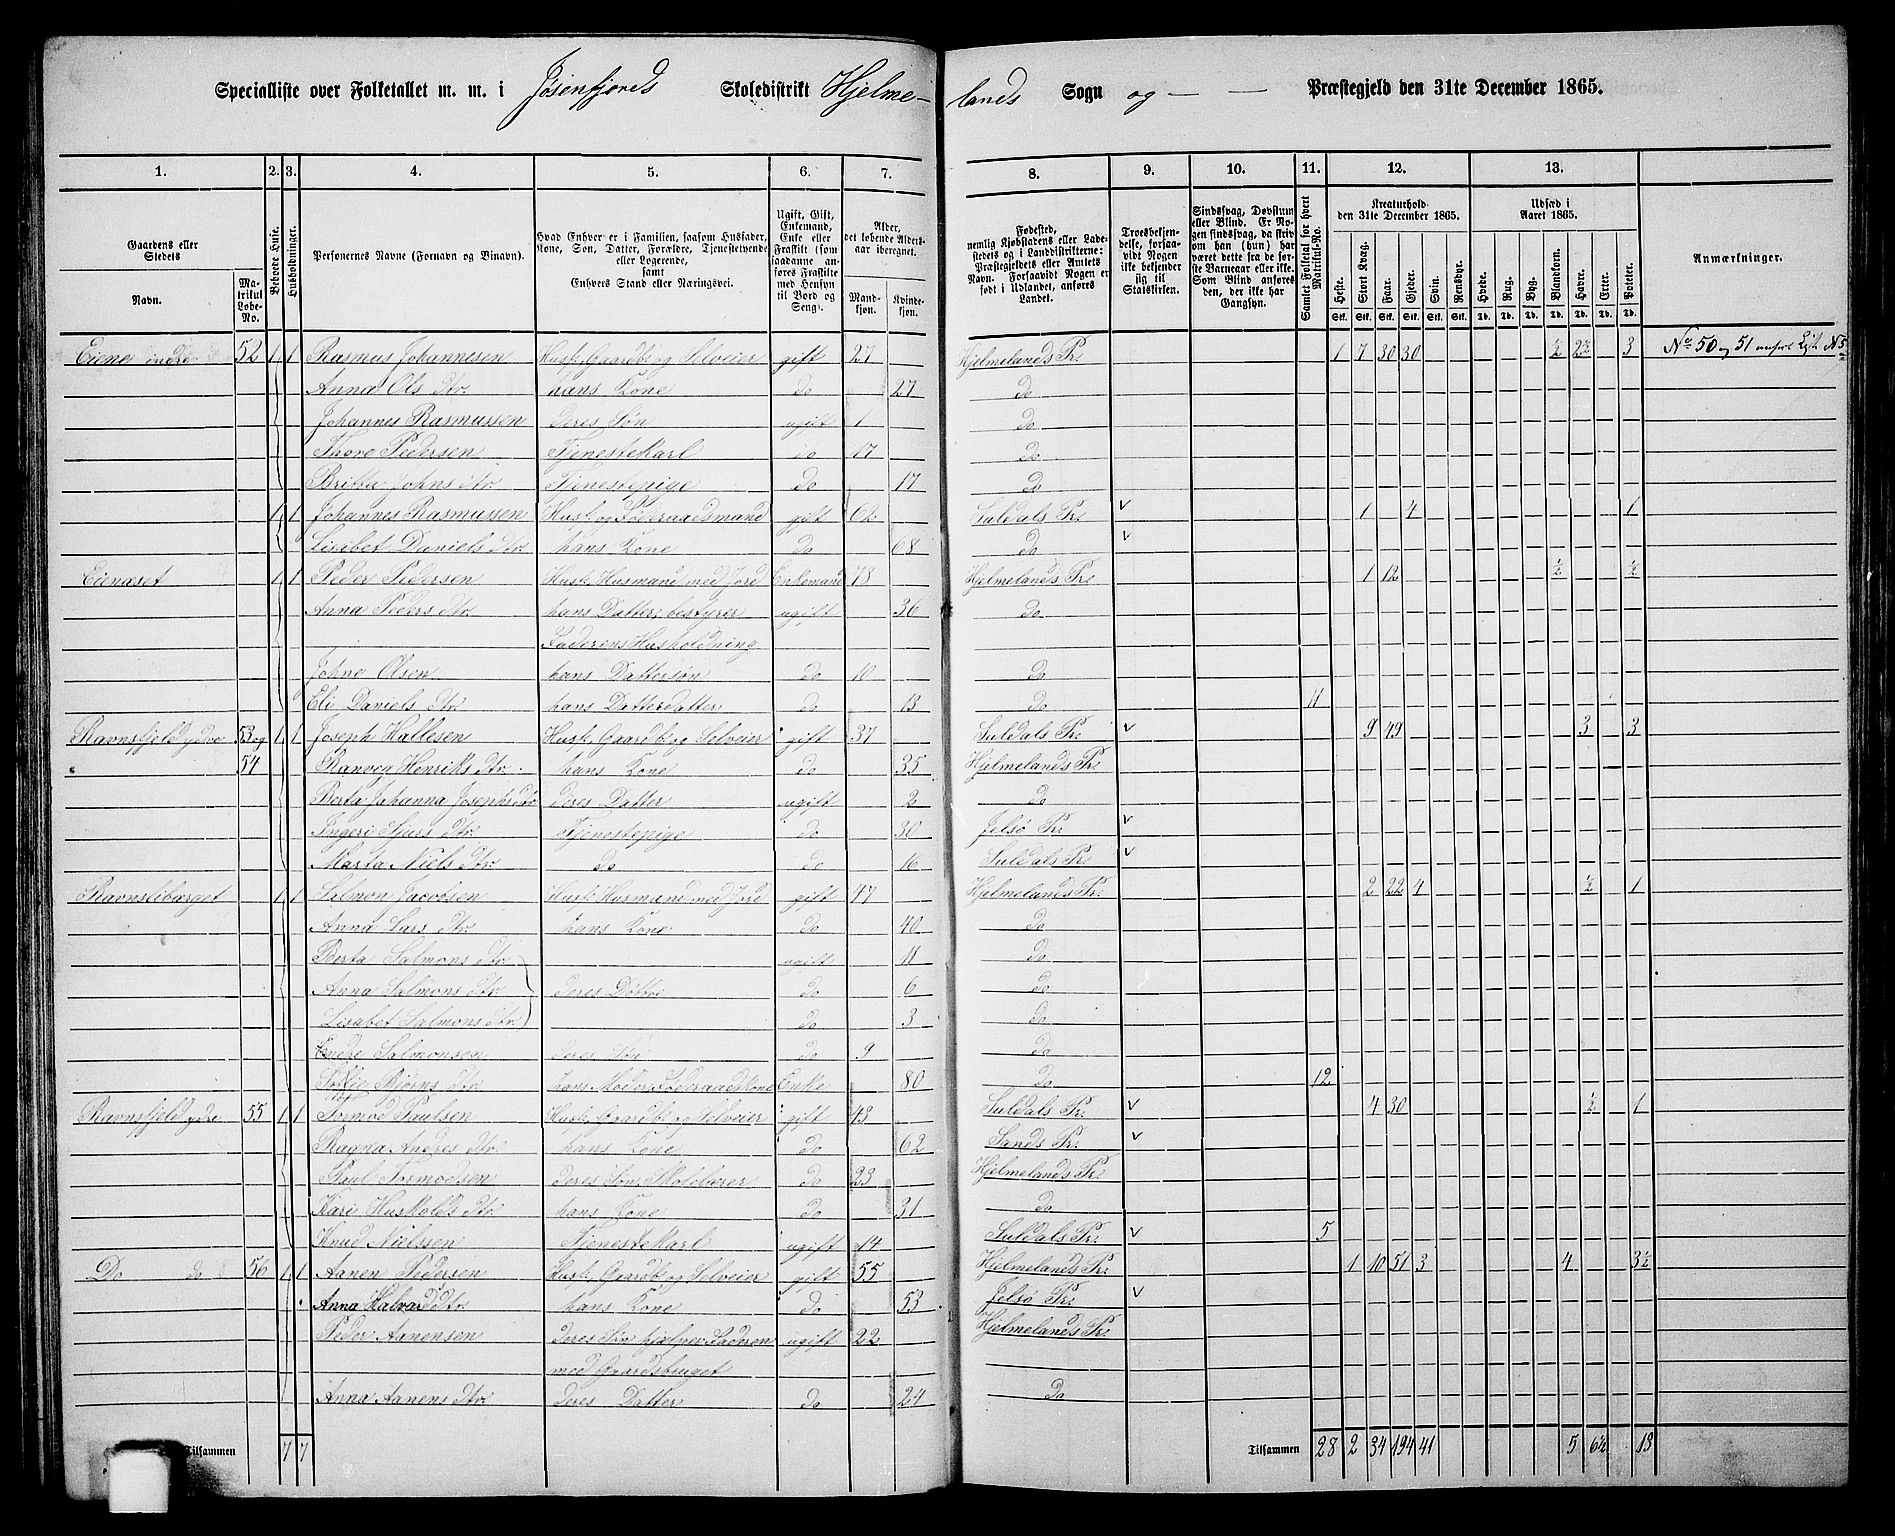 Specialliste over Folketallet m. m. i Jøsenfjords Skoledistrikt Hjelmelands Sogn og — — Præstegjeld den 31te December 1865.
1. 2. 3. 4. 5. 6. 7. 8. 9. 10. 11. 12. 13.
Gaardens eller Stedets Navn. Matrikul Løbe-No.
Beboede Huse.
Husholdninger.
Personernes Navne (Fornavn og Tilnavn).
Hvad Enhver er i Familien, saasom Husfader, Kone, Søn, Datter, Forældre, Tjenestetyende eller Logerende, samt Enhvers Stand eller Næringsvei.
Alder, det løbende Aldersaar iberegnet. Mandkjøn. Kvindekjøn.
Fødested, nemlig Kjøbstadens eller Ladestedets og i Landdistrikterne: Præstegjeldets eller Amtets Navn. Forsaavidt Nogen er født i Udlandet, anføres Landet.
Troesbekjendelse, forsaavidt Nogen ikke bekjender sig til Statskirken.
Samlet Folketal for hvert Matrikul-No.
Kreaturhold den 31te December 1865. Heste. Stort Kvæg. Faar. Gjeder. Svin. Rensdyr.
Udsæd i Aaret 1865. Hvede. Rug. Byg. Blandkorn. Havre. Erter. Poteter.
Anmærkninger.
Eiene indre 52 1 1 Rasmus Johannesen Husf. Gaardb. og Selveier gift 27 Hjelmelands Pr. 1 7 30 30 ½ 2½ 3 No 50 og 51
Anna Ols Dtr. hans Kone do 27 do
Johannes Rasmussen deres Søn ugift 1 do
Thore Pedersen Tjenestekarl do 17 do
Britha Johns Dtr. Tjenestepige do 17 do
1 1 Johannes Rasmussen Husf. og Føderaadsmand gift 62 Suldals Pr. v 1 4 1
Lisibet Daniels Dtr. hans Kone do 68 do v
Eienaset 1 1 Peder Pedersen Husf. Husmand med Jord Enkemand 73 Hjelmelands Pr. 1 12 ½ ½
Anna Peders Dtr. hans Datter, bestyrer ugift 36 do
Faderens Husholdning
Johne Olsen hans Dattersøn do 10 do
Eli Daniels Dtr. hans Datterdatter do 13 do 11
Ravnsfjeld ydre 53 og 1 1 Joseph Hallesen Husf. Gaardb. og Selveier gift 37 Suldals Pr. v 9 49 3 3
54 Ranveg Henriks Dtr. hans Kone do 35 Hjelmelands Pr.
Berta Johanna Josephs Dtr deres Datter ugift 2 do
Ingeri Sjurs Dtr. Tjenestepige do 30 Jelsø Pr. v
Marta Niels Dtr. do do 16 Suldals Pr. v
Ravnslibarget 1 1 Salmon Jacobsen Husf. Husmand med Jord gift 47 Hjelmelands Pr. 2 22 4 ½ 1
Anna Lars Dtr. hans Kone do 40 do
Berta Salmons Dtr. ugift 11 do
Anna Salmons Dtr. deres Døttre do 6 do
Lisabet Salmons Dtr. do 3 do
Endre Salmonsen deres Søn do 9 do
Bjørns Dtr. hans Moder, Føderaadskone Enke 80 do 12
Ravnsfjeld ydre 55 1 1 Tormod Paulsen Husf. Gaardb. og Selveier gift 48 Suldals Pr. v 4 30 ½ 1
Ragna Andres Dtr. hans Kone do 62 Sands Pr. v
Paul Tormodsen deres Søn, Skolelærer do 23 Hjelmelands Pr.
Kari Huskolds Dtr. hans Kone do 31 do
Knud Nielssen Tjenestekarl ugift 14 Suldals Pr. v 5
Do do 56 1 1 Aanen Pedersen Husf. Gaardb. og Selveier gift 55 Hjelmelands Pr. 1 10 51 3 4 3½
Anna Halvards Dtr. hans Kone do 53 Jelsø Pr. v
Peder Aanensen deres Søn hjælper Faderen ugift 22 Hjelmelands Pr.
med Gaardsbruget
Anna Aanens Dtr. deres Datter do 24 do
Tilsammen 7 7 Tilsammen 28 2 34 194 41 5 6½ 13